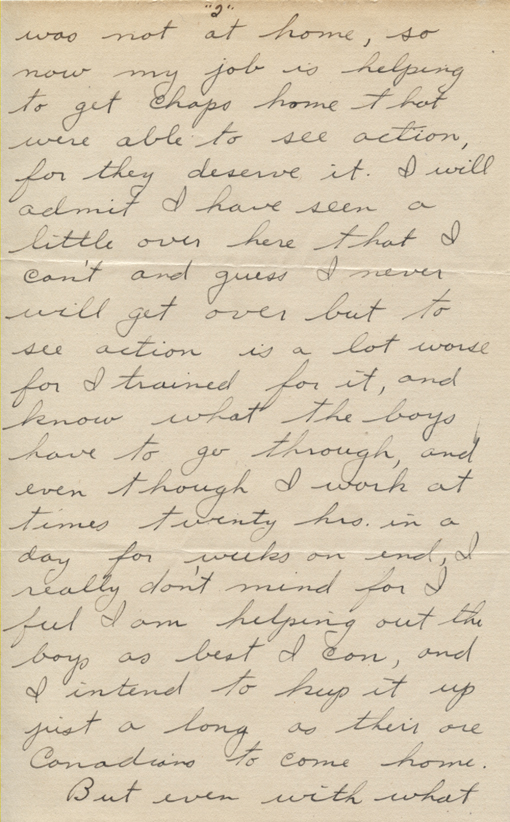 "2"
was not at home, so
now my job is helping
to get chaps home that
were able to see action,
for they deserve it. I will
admit I have seen a
little over here that I
can't and guess I never
will get over but to
see action is a lot worse
for I trained for it, and
know what the boys
have to go through, and
even though I work at
times twenty hrs. in a
day for weeks on end, I
really don't mind for I
feel I am helping out the
boys as best I can, and
I intend to keep it up
just a long as their are
Canadians to come home.
But even with what